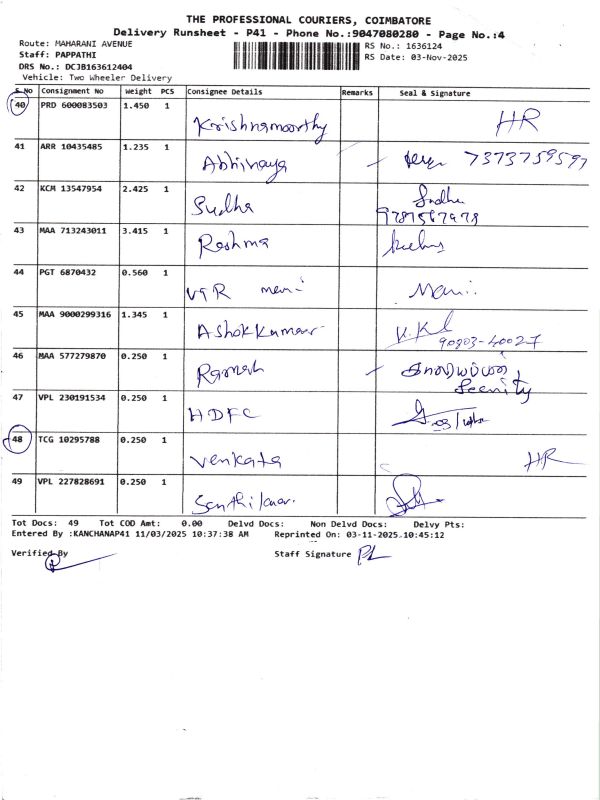 THE PROFESSIONAL COURIERS, COIMBATORE
Delivery Runsheet - P41 - Phone No.:9047080280 - Page No.:4
Route: MAHARANI AVENUE
RS No.: 1636124
Staff: PAPPATHI
RS Date: 03-Nov-2025
DRS No.: DCJB163612404
Vehicle: Two Wheeler Delivery
S No Consignment No Weight PCS Consignee Details Remarks Seal & Signature
40 PRD 600083503 1.450 1
Krishnamoorthy HR
41 ARR 10435485 1.235 1
Abhinaya 7373759597
42 KCM 13547954 2.425 1
Sudha Sudha
9787567978
43 MAA 713243011 3.415 1
Reshma
44 PGT 6870432 0.560 1
VGR mani Mani.
45 MAA 9000299316 1.345 1
Ashok Kumar K.Kl
90803-40027
46 MAA 577279870 0.250 1
Ramesh
Security
47 VPL 230191534 0.250 1
HDFC
48 TCG 10295788 0.250 1
Venkata HR
49 VPL 227828691 0.250 1
Senthilkumar
Tot Docs: 49 Tot COD Amt: 0.00 Delvd Docs: Non Delvd Docs: Delvy Pts:
Entered By :KANCHANAP41 11/03/2025 10:37:38 AM Reprinted On: 03-11-2025 10:45:12
Verified By Staff Signature